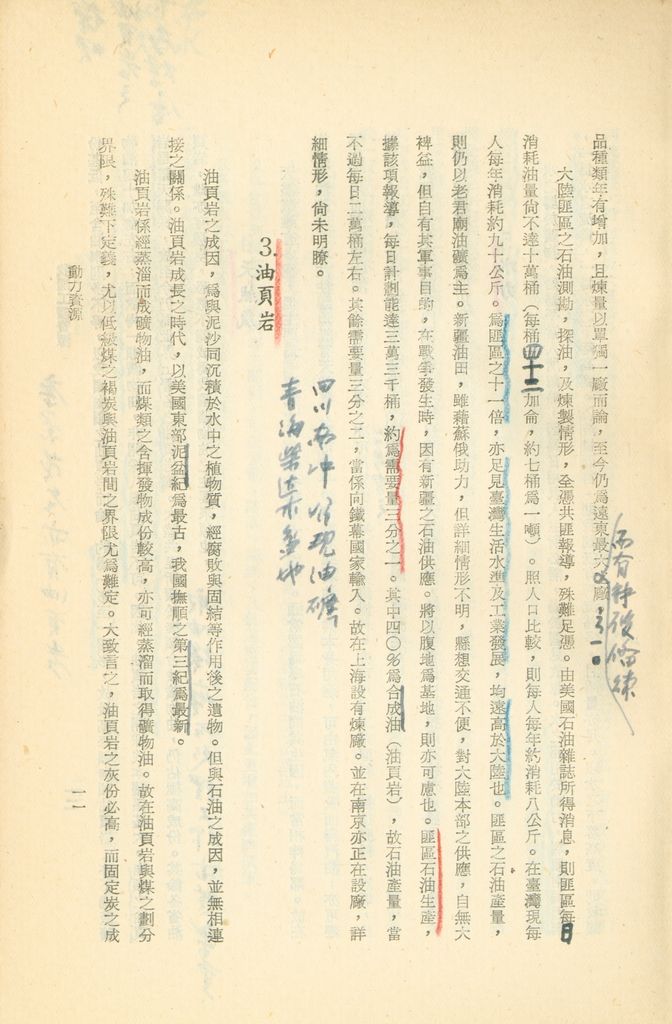 品種類年有增加，且煉量以單獨一廠而論，至今仍為遠東最大之廠
大陸匪區之石油測勘，探油，及煉製情形，全憑共匪報導，殊難足憑。由美國石油雜誌所得消息，則匪區每日
消耗油量尚不達十萬桶（每桶四十二加侖，約七桶為一噸）。照人口比較，則每人每年約消耗八公斤。在臺灣現每
人每年消耗約九十公斤。為匪區之十一倍，亦足見臺灣生活水準及工業發展，均遠高於大陸也。匪區之石油產量，
則仍以老君廟油礦為主。新疆油田，雖藉蘇俄助力，但詳細情形不明，懸想交通不便，對大陸本部之供應，自無大
裨益，但自有其軍事目的，在戰爭發生時，因有新疆之石油供應。將以腹地為基地，則亦可慮也。匪區石油生產，
據該項報導，每日計劃能達三萬三千桶，約為需要量三分之一。其中四〇％為合成油（油頁岩），故石油產量，當
不過每日二萬桶左右。其餘需要量三分之二，當係向鐵幕國家輸入。故在上海設有煉廠。並在南京亦正在設廠，詳
細情形，尚未明瞭。
四川南冲 發現油礦
青海柴達木盆地
3.油頁岩
油頁岩之成因，為與泥沙同沉積於水中之植物質，經腐敗與固結等作用後之遺物。但與石油之成因，並無相連
接之關係。油頁岩成長之時代，以美國東部泥盆紀為最古，我國撫順之第三紀為最新。
油頁岩係經蒸溜而成礦物油，而煤類之含揮發物成份較高，亦可經蒸溜而取得礦物油。故在油頁岩與煤之劃分
界限，殊難下定義，尤以低級煤之褐炭與油頁岩間之界限尤為難定。大致言之，油頁岩之灰份必高，而固定炭之成
動力資源
一一